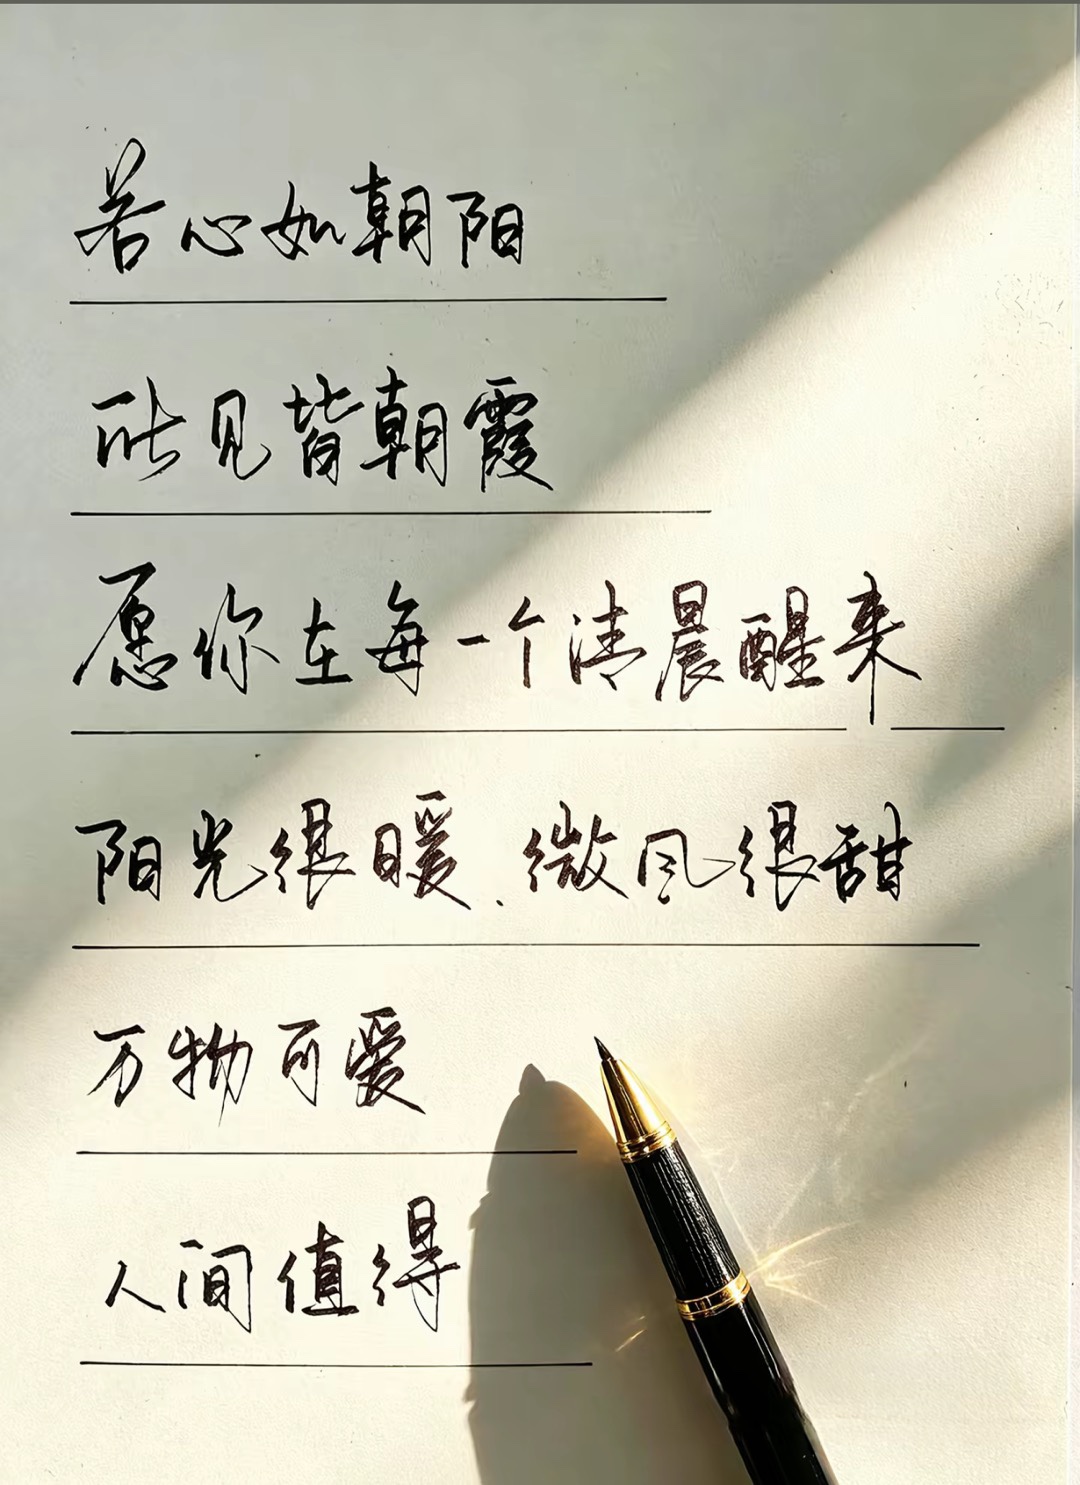 若心如朝阳
所见皆朝霞
愿你在每一个清晨醒来
阳光很暖.微风很甜
万物可爱
人间值得